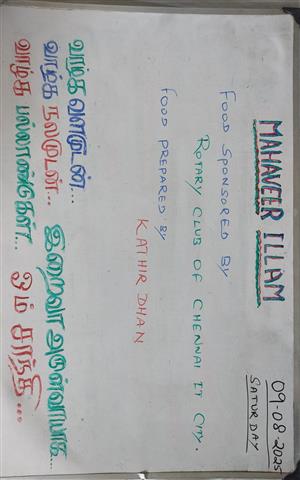 09-08-2025
SATURDAY
MAHAVEER ILLAM
FOOD SPONSORED BY
ROTARY CLUB OF CHENNAI IT CITY.
FOOD PREPARED BY
KATHIR DHAN
வாழ்க வளமுடன்...
வாழ்க நலமுடன்... இறைவா அருள்வாயாக...
வாழ்க பல்லாண்டுகள்... ஓம் சாந்தி...